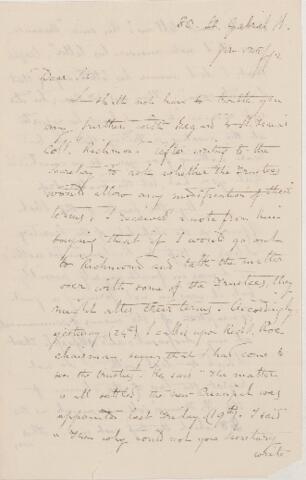 80 St. Gabriel St.
Dear Sir
I shall not have to trouble you
any further with regard to St Francis
Coll. Richmond. After writing to the
secretary to ask whether the Trustees
would allow any modification of their
terms, I received a note from him
saying that if I would go out
to Richmond and talk the matter
over with some of the Trustees, they
might alter their terms. Accordingly
yesterday (24th) I called upon
chairman, saying that I had come to
see the trustees. He said "The matter
is all settled, the new Principal was
appointed last Friday (19th). I said
"Then why would not your Secretary
write